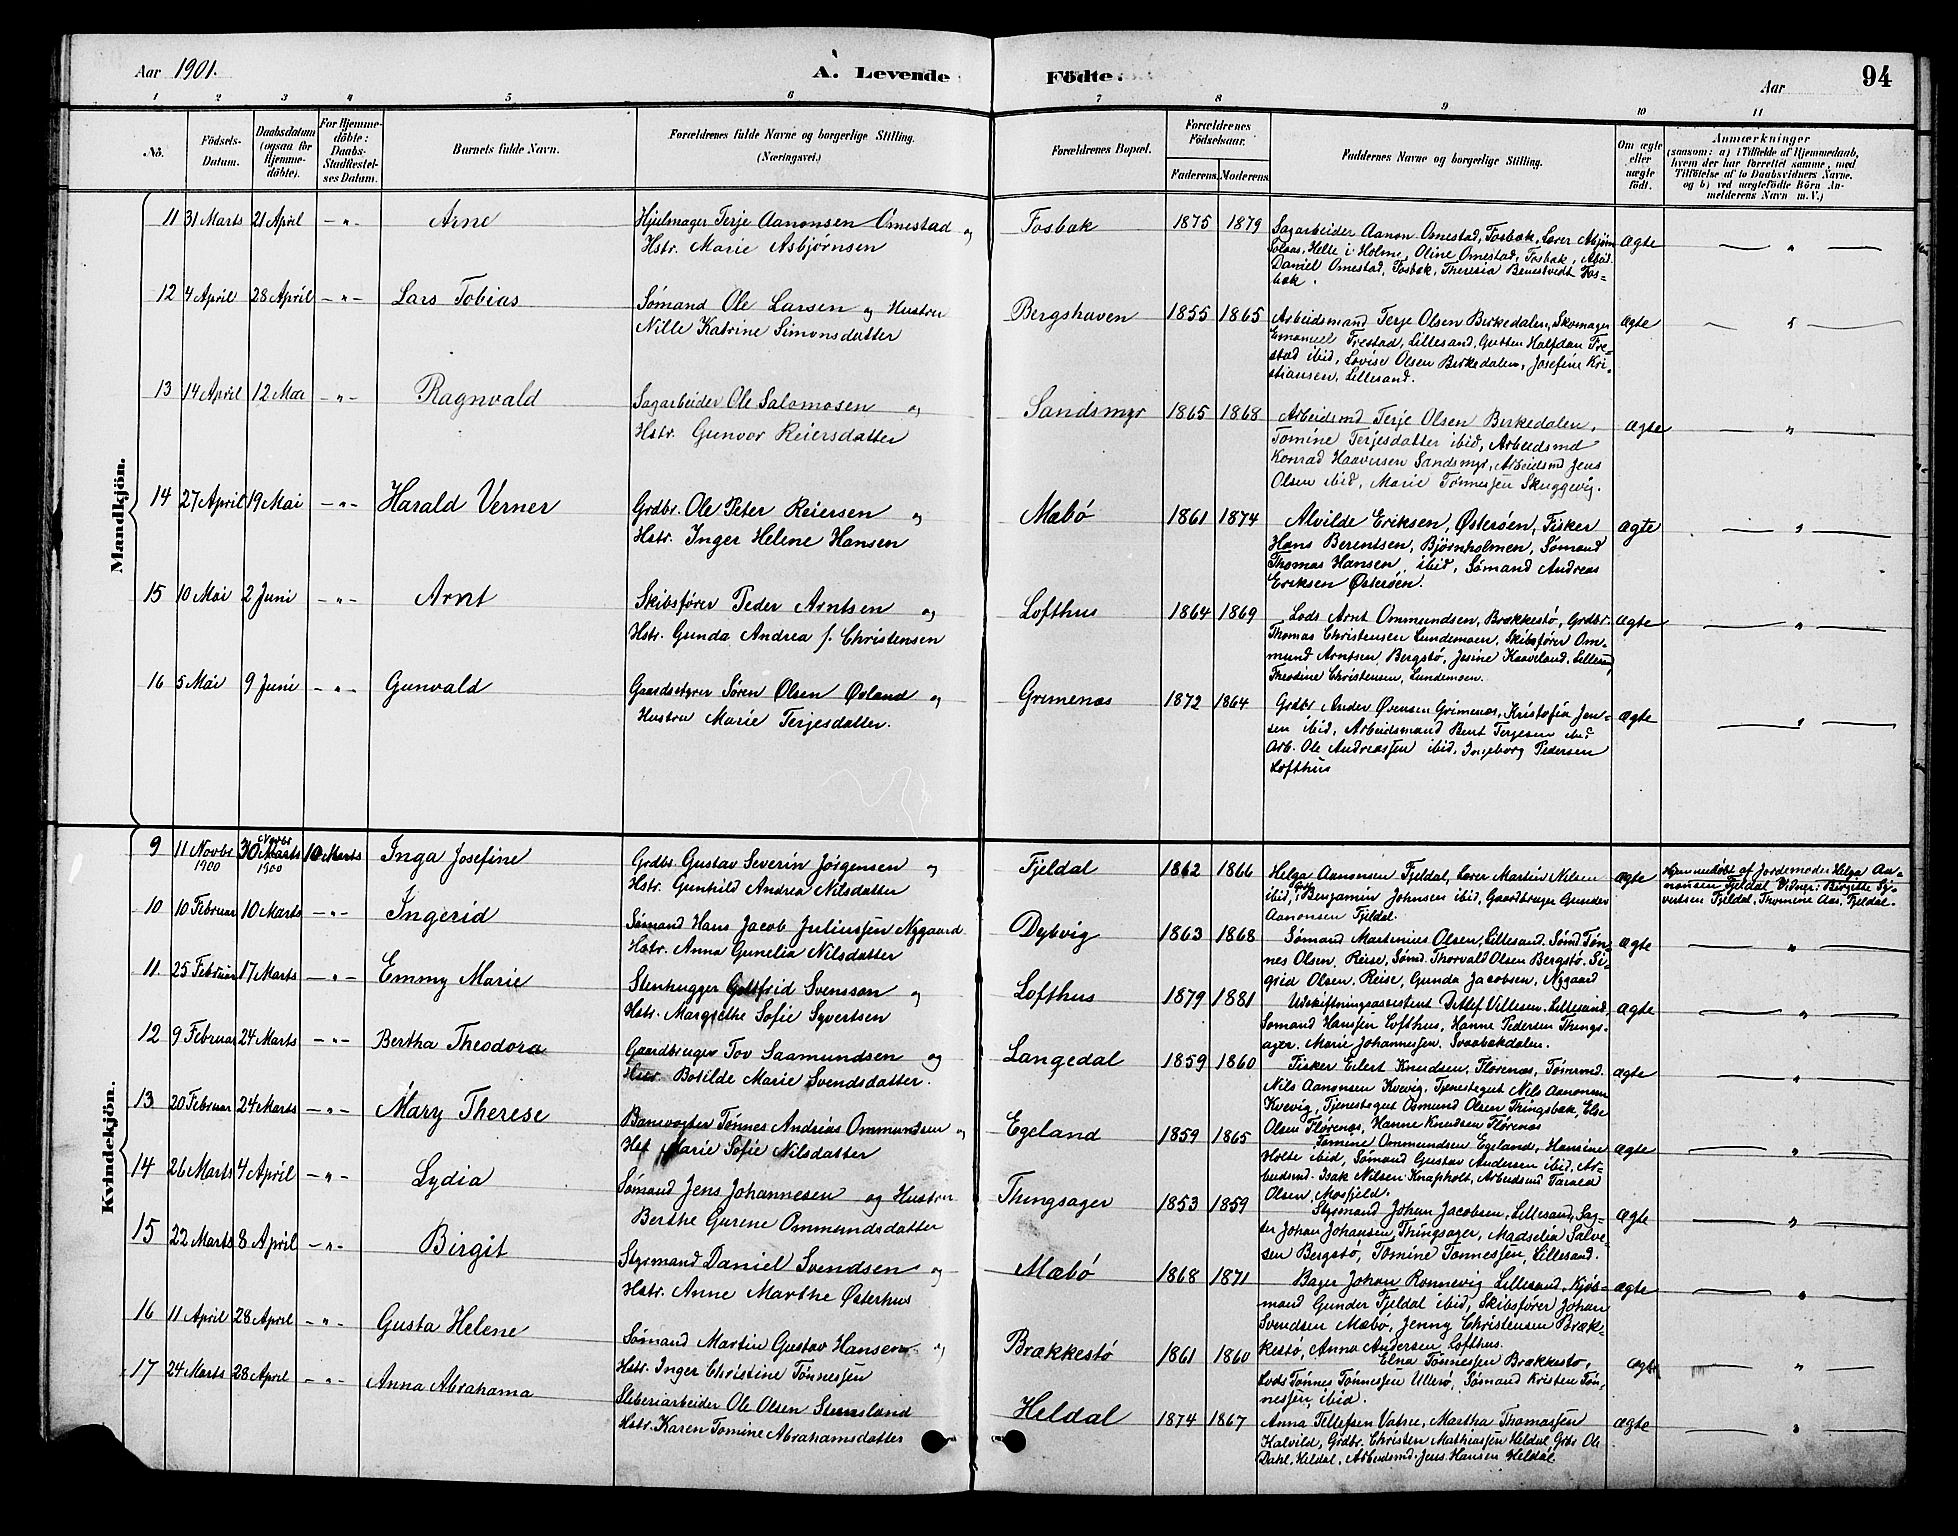 Aar 1901.
A. Levende
Födte.
Aar
94
1 2 3 4 5 6 7 8 9 10 11
No.
Födsels-
Datum.
Daabsdatum
(ogsaa for
Hjemme-
döbte).
For Hjemme-
döbte:
Daabs-
Stadfæstel-
ses Datum.
Barnets fulde Navn.
Forældrenes fulde Navne og borgerlige Stilling.
(Næringsvei.)
Forældrenes Bopæl.
Forældrenes
Födselsaar.
Faderens. Moderens.
Faddernes Navne og borgerlige Stilling.
Om ægte
eller
uægte
födt.
Anmærkninger
(saasom: a) i Tilfælde af Hjemmedaab,
hvem der har forrettet samme, med
Tilföielse af to Daabsvidners Navne.
og b) ved uægtefödte Börn An-
melderens Navn m. V.)
Mandkjön.
11 31 Marts 21 April – " – Arne
Hjulmager Terje Aanonsen Omestad og
Hstr. Marie Asbjørnsen
Fosbæk 1875 1879
Sagarbeider Aanon Omestad, Fosbæk, Lærer Asbjørn
Solaas, Helle i Holme, Oline Omestad, Fosbæk, Arbd.
Daniel Omestad, Fosbæk, Theresia Benestvedt Fos-
bæk.
Ægte — " —
12 4 April 28 April – " – Lars Tobias
Sømand Ole Larsen og Hustru
Nille Katrine Simonsdatter
Bergshaven 1855 1865
Arbeidsmand Terje Olsen Birkedalen, Skomager
Emanuel Trestad, Lillesand, Gutten Halfdan Tre-
stad ibid, Lovise Olsen Birkedalen, Josefine Kri-
stiansen, Lillesand.
Ægte — " —
13 14 April 12 Mai – " – Ragnvald
Sagarbeider Ole Salomosen og
Hstr. Gunvor Reiersdatter
Sandsmyr 1865 1868
Arbeidsmd Terje Olsen Birkedalen,
Tomine Terjesdatter ibid, Arbeidsmd
Konrad Haaversen Sandsmyr, Arbeidsmd Jens
Olsen ibid, Marie Tønnessen Skuggevig.
Ægte — " —
14 27 April 19 Mai – " – Harald Verner
Grdbr. Ole Peter Reiersen og
Hstr. Inger Helene Hansen
Mæbø 1861 1874
Alvilde Eriksen, Østerøen, Fisker
Hans Berentsen, Bjørnholmen, Sømand
Thomas Hansen, ibid, Sømand Andreas
Eriksen Østerøen.
Ægte — " —
15 10 Mai 2 Juni – " – Arnt
Skibsfører Peder Arntsen og
Hstr. Gunda Andrea f. Christensen
Lofthus 1864 1869
Lods Arnt Ommundsen, Brækkestø, Grdbr.
Thomas Christensen Lundemoen, Skibsfører Om-
mund Arntsen Bergstø, Josine Kaaveland, Lillesand
Theodine Christensen, Lundemoen.
Ægte — " —
16 5 Mai 9 Juni – " – Gunvald
Gaardsstyrer Søren Olsen Øvland og
Hustru Marie Terjesdatter.
Grimenæs 1872 1864
Grdbr Ander Ovensen Grimenæs, Kristofia Jen-
sen ibid, Arbeidsmand Bent Terjesen ibid
Arb. Ole Andreassen ibid, Ingeborg Pedersen
Lofthus
Ægte — " —
Kvindekjön.
9 11 Novbr 1900 30 Novbr 1900 10 Marts Inga Josefine
Grdbr. Gustav Severin Jörgensen og
Hstr. Gunhild Andrea Nilsdatter
Fjeldal 1862 1866
Helga Aanonsen Fjeldal, Lærer Martin Nilsen
ibid, Benjamin Johnsen ibid, Gaardbruger Gunder
Aanonsen Fjeldal.
Ægte
Hjemmedøbt af Jordemoder Helga Aa-
nonsen Fjeldal. Vidner: Birgitte Sy-
vertsen Fjeldal, Thomine Aas, Fjeldal.
10 10 Februar 10 Marts – " – Ingerid
Sømand Hans Jacob Juliussen Nygaard
Hstr. Anna Gunelia Nilsdatter
Dybvig 1863 1868
Sømand Martinius Olsen, Lillesand, Sømd Tøn-
nes Olsen, Reise, Sømd. Thorvald Olsen Bergstø. Si-
grid Olsen, Reise, Gunda Jacobsen, Nygaard
Ægte — " —
11 25 Februar 17 Marts – " – Emmy Marie
Stenhugger Gottfrid Svensson og
Hstr. Margrethe Sofie Syvertsen
Lofthus 1879 1881
Udskiftningsassistent Ditlef Villesen, Lillesand,
Sømand Hanssen Lofthus, Hanne Pedersen Things-
ager, Marie Johannessen, Svaabækdalen.
Ægte — " —
12 9 Februar 24 Marts – " – Bertha Theodora
Gaardbruger Tov Saamundsen og
Hstr. Botilde Marie Svendsdatter.
Langedal 1859 1860
Fisker Eilert Knudsen, Florenæs, Tømrmd.
Nils Aanonsen Kvevig, Tjenestegut Nils Aanonsen
Kvevig, Tjenestegut Osmund Olsen Thingsbæk, Else
Olsen Florenæs, Hanne Knudsen Florenæs
Ægte — " —
13 20 Februar 24 Marts – " – Mary Therese
Banevogter Tønnes Andreas Ommundsen og
Hst. Marie Sofie Nilsdatter
Egeland 1859 1865
Tomine Ommundsen Egeland, Hansine
Holte ibid, Sømand Gustav Andersen ibid, Ar-
beidsmd. Isak Nilsen Knapholt, Arbeidsmd Tarald
Olsen, Mosfjeld.
Ægte — " —
14 26 Marts 4 April – " – Lydia
Sømand Jens Johannesen og Hustru
Berthe Gurene Ommundsdatter
Thingsager 1853 1859
Styrmand Johan Jacobsen, Lillesand, Sag-
ter Johan Johansen, Thingsager, Madselia Salve-
sen Bergstø, Tomine Tønnessen, Lillesand.
Ægte — " —
15 22 Marts 8 April – " – Birgit
Styrmand Daniel Svendsen og
Hstr. Anne Marthe Østerhus
Mæbø 1868 1871
Bager Johan Ronnevig Lillesand, Kjøb-
mand Gunder Fjeldal ibid, Skibsfører Johan
Svendsen Mæbø, Jenny Christensen Bræk-
kestø, Anna Andersen Lofthus.
Ægte — " —
16 11 April 28 April – " – Gusta Helene
Sømand Martin Gustav Hansen og
Hstr. Inger Christine Tønnessen
Brækkestø 1861 1860
Elna Tønnessen Brækkestø,
Lods Tønnes Tønnessen Ulerø, Sømand Kristen Tøn-
nessen ibid.
Ægte — " —
17 24 Marts 28 April – " – Anna Abrahama
Sleberiarbeider Ole Olsen Stensland
Hstr. Karen Tomine Abrahamsdatter
Heldal 1874 1867
Anna Tellefsen Vatne, Martha Thomassen
Kalvild, Grdbr. Christen Mathiassen Heldal, Grbr Ole
Dahl, Heldal, Arbeidsmd. Jens Hansen Heldal.
Ægte — " —